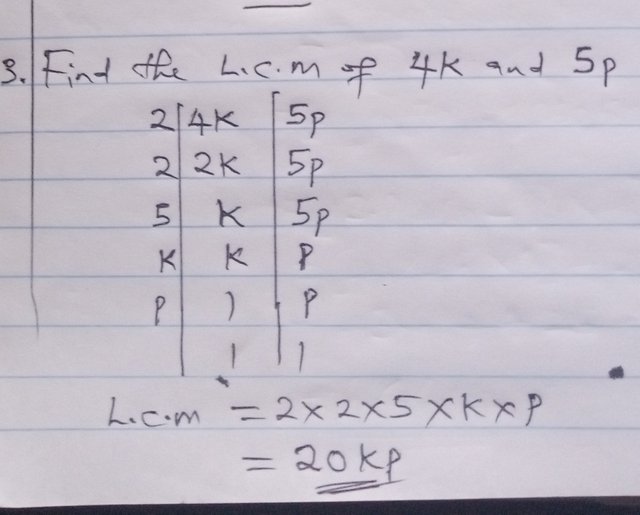 3. Find the L.c.m of 4K and 5p
2 4K 5p
2 2K 5p
5 K 5p
K K P
P 1 P
1 1
L.c.m = 2 × 2 × 5 × K × P
= 20KP